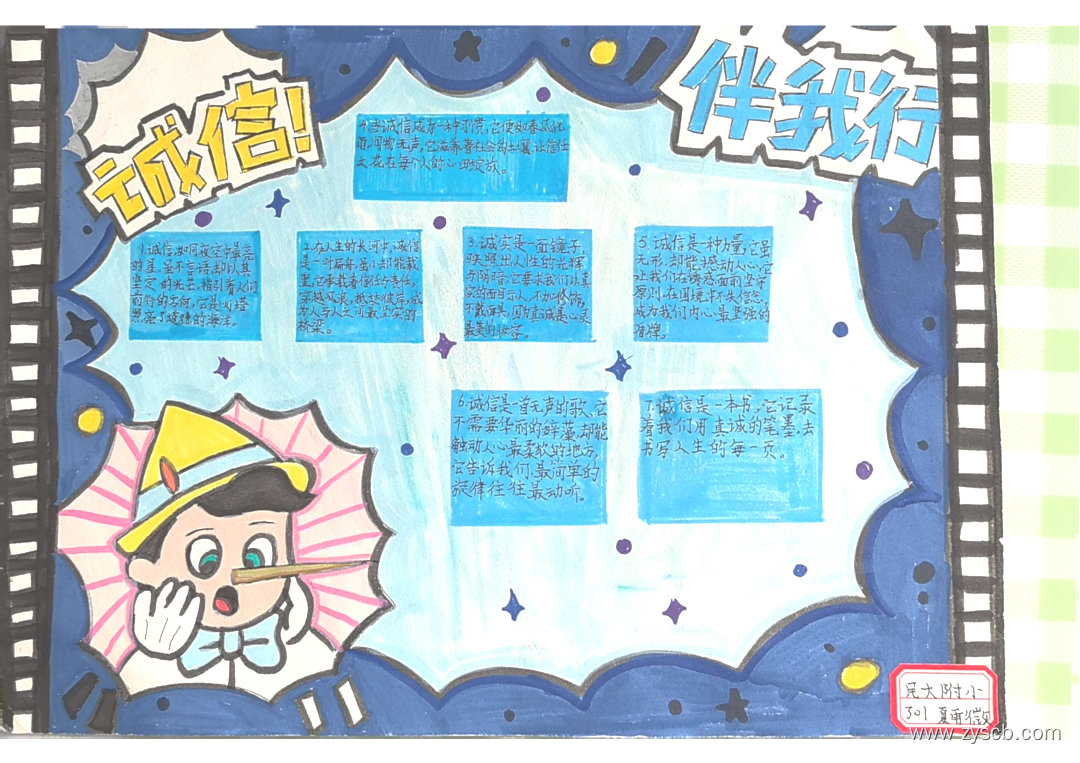 诚信!
伴我行
4.当诚信成为一种习惯,它便如春风化
雨,润物无声,它滋养着社会的土壤,让信任
之花在每个人的心田绽放。
1.诚信,如同夜空中最亮
的星,虽不言语却以其
坚定的光芒,指引着人们
前行的方向,它是灯塔
照亮了道德的海洋。
2.在人生的长河中,诚信
是一叶扁舟,虽小却能载
重,它承载着信任与责任,
穿越风浪,抵达彼岸,成
为人与人之间最坚实的
桥梁。
3.诚实是一面镜子,
映照出人性的光辉
与阴暗,它要求我们以真
实的面目示人,不加修饰,
不戴面具,因为真诚是心灵
最美的妆容。
5.诚信是一种力量,它虽
无形,却能撼动人心,它
让我们在诱惑面前坚守
原则,在困境中不失信念,
成为我们内心最坚强的
盾牌。
6.诚信是一首无声的歌,它
不需要华丽的辞藻,却能
触动人心最柔软的地方,
它告诉我们,最简单的
旋律往往最动听。
7.诚信是一本书,它记录
着我们用真诚的笔墨,去
书写人生的每一页。
民大附小
301 夏雨微
www.zyscb.com